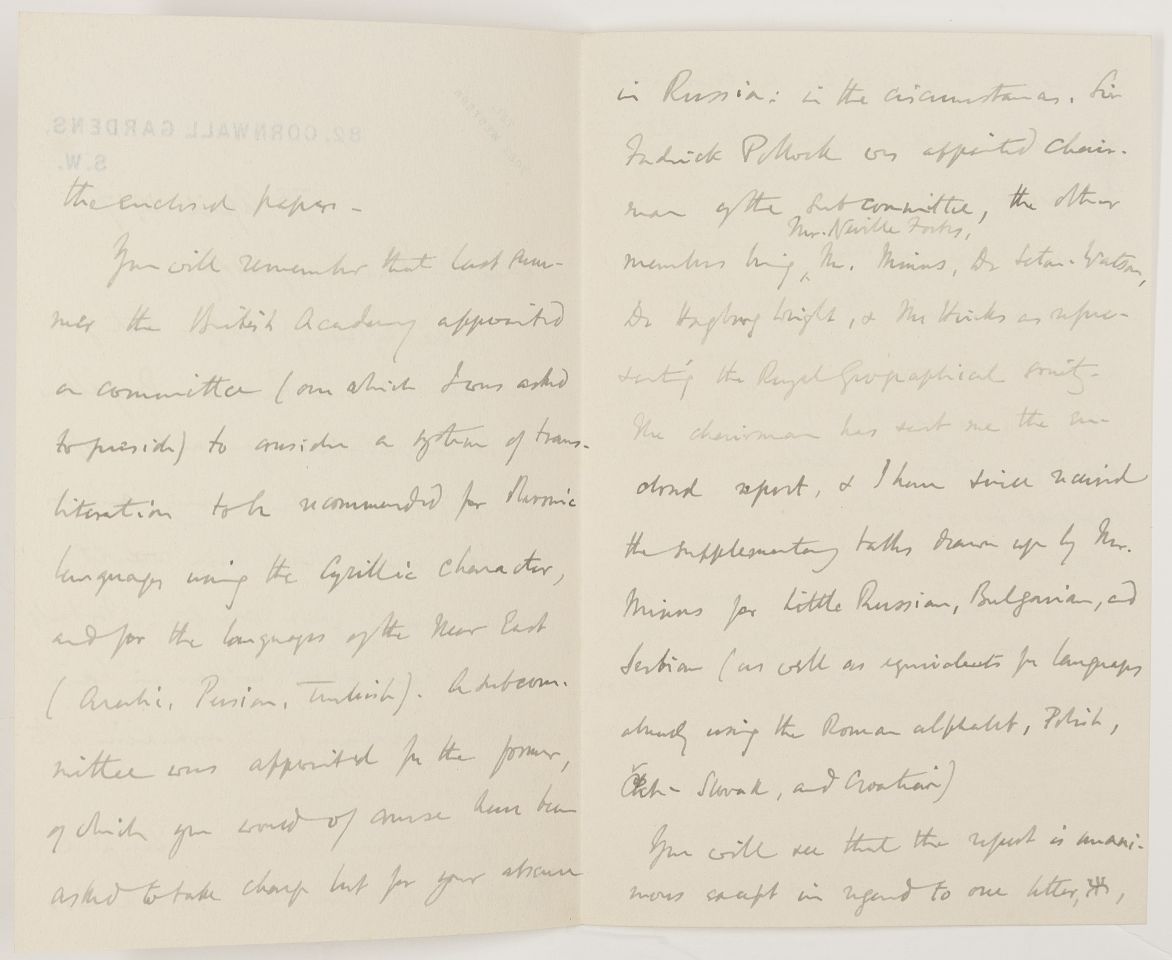 82. CORNWALL GARDENS.
S.W.
the enclosed papers -
You will remember that last sum-
mer the British Academy appointed
a committee (on which I was asked
to preside) to consider a system of trans-
literation to be recommended for Slavonic
languages using the Cyrillic character,
and for the languages of the Near East
(Arabic, Persian, Turkish). A subcom-
mittee was appointed for the former,
of which you would of course have been
asked to take charge but for your absence
in Russia: in the circumstances, Sir
Frederick Pollock was appointed Chair-
man of the subcommittee, the other
Mr. Neville Forbes,
members being Mr. Minns, Dr Seton-Watson,
Dr Hagberg Wright, & Mr Hinks as repre-
senting the Royal Geographical Society.
The chairman has sent me the en-
closed report, & I have since received
the supplementary tables drawn up by Mr.
Minns for Little Russian, Bulgarian, and
Serbian (as well as equivalents for languages
already using the Roman alphabet, Polish,
Slovak, and Croatian)
You will see that the report is unani-
mous except in regard to one letter, ж,